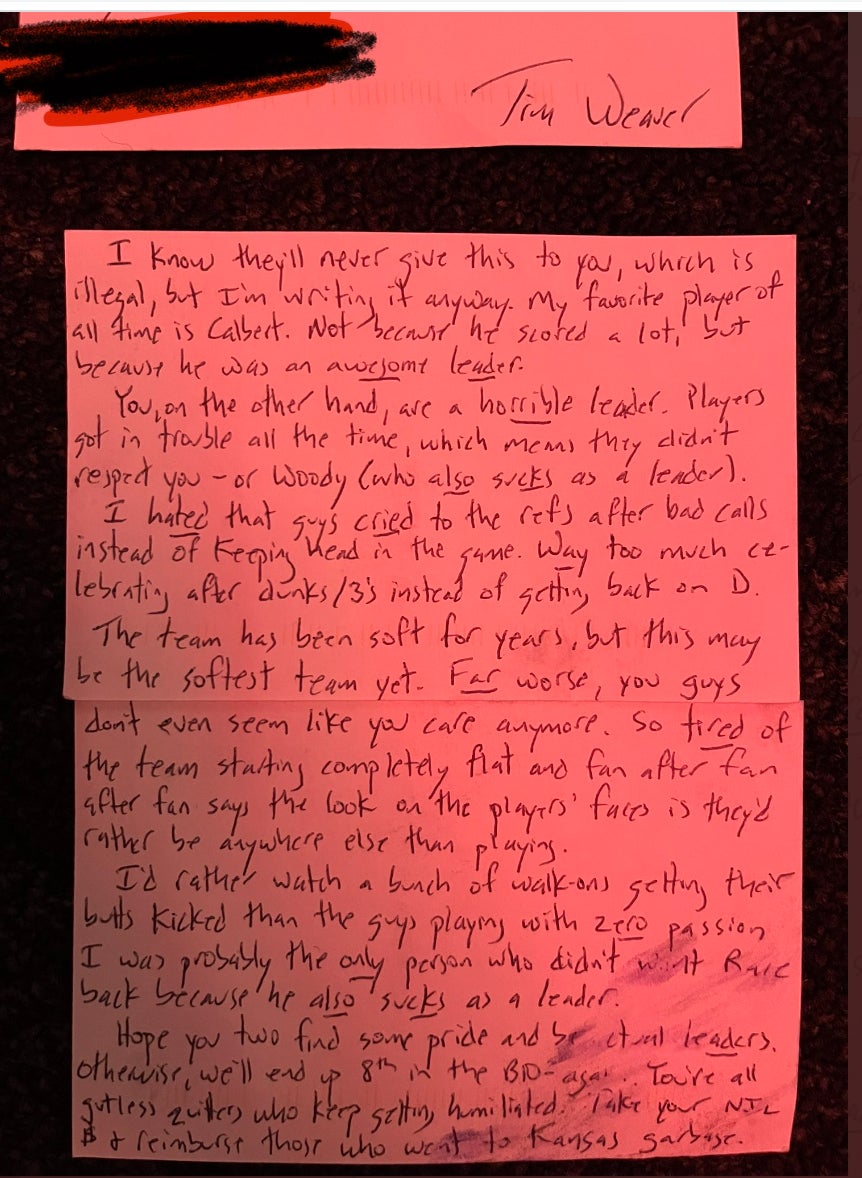 Tim Weaver
I know they'll never give this to you, which is
illegal, but I'm writing it anyway. My favorite player of
all time is Calbert. Not because he scored a lot, but
because he was an awesome leader.
You, on the other hand, are a horrible leader. Players
got in trouble all the time, which means they didn't
respect you - or Woody (who also sucks as a leader).
I hated that guys cried to the refs after bad calls
instead of keeping head in the game. Way too much ce-
lebrating after dunks/3's instead of getting back on D.
The team has been soft for years, but this may
be the softest team yet. Far worse, you guys
don't even seem like you care anymore. So tired of
the team starting completely flat and fan after fan
after fan says the look on the players' faces is they'd
rather be anywhere else than playing.
I'd rather watch a bunch of walk-ons getting their
butts kicked than the guys playing with zero passion
I was probably the only person who didn't want Race
back because he also sucks as a leader.
Hope you two find some pride and be actual leaders.
Otherwise, we'll end up 8th in the B10 again. You're all
gutless quitters who keep getting humiliated. Take your NIL
$ & reimburse those who went to Kansas garbage.